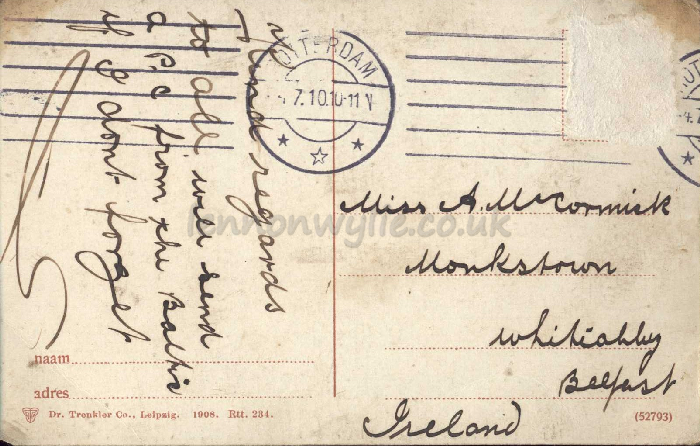 Kind regards
to all will send
a P.C from the Baltic
if I dont forget
ROTTERDAM
7.10.10-11 V
Miss A. McCormick
Monkstown
Whiteabby
Belfast
Ireland
lennonwylie.co.uk
naam
adres
Dr. Trenkler Co., Leipzig. 1908. Rtt. 234.
(52793)